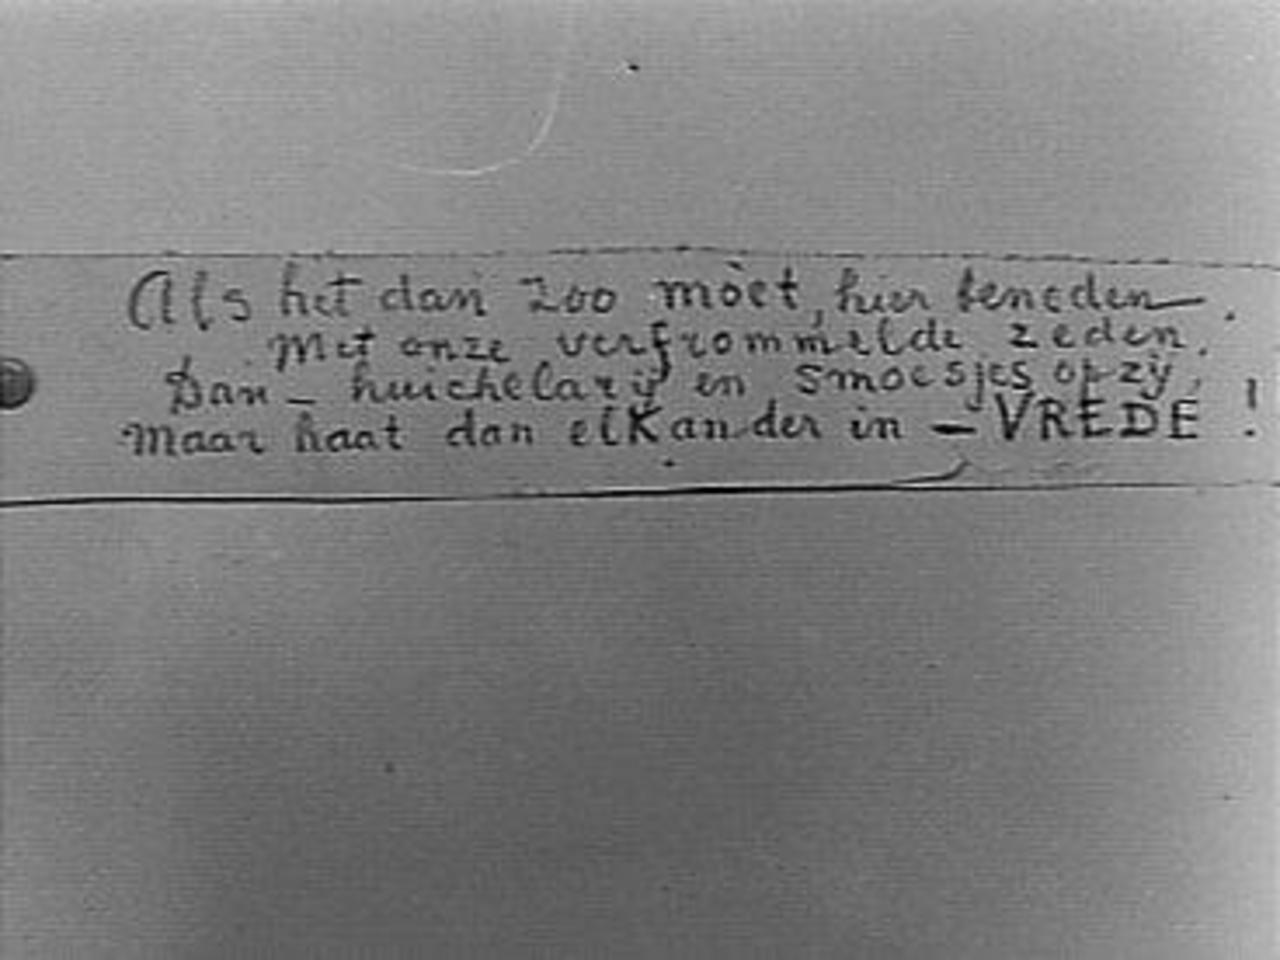 Als het dan zoo moet, hier beneden—.
Met onze verfrommelde zeden.
Dan – huichelarij en smoesjes opzij,
Maar haat dan elkander in – VREDE !